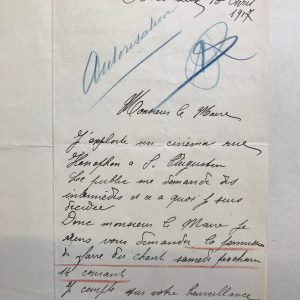 Avril
1917
Autorisation
Monsieur le Maire
J'exploite un cinéma rue
Xénophon à S. Augustin
Le public me demande des
intermèdes et ce a quoi je suis
décider
Donc monsieur le Maire je
viens vous demander la permission
de faire du chant samedi prochain
14 courant
J compte sur votre bienveillance